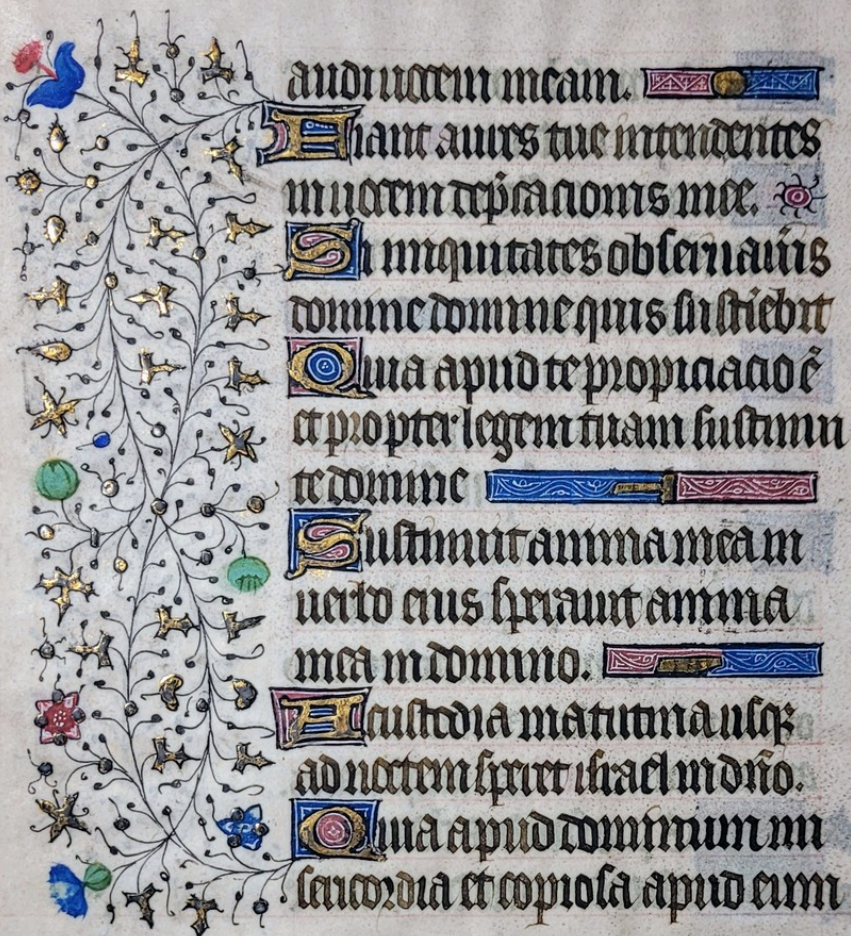 audi uocem meam.
Fiant aures tue intendentes
in uocem dep̃cacionis mee.
Si iniquitates obseruaũis
domine domine quis sustiẽbit
Quia apud te propiciacio ẽ
et propter legem tuam sustinui
te domine
Sustinuit anima mea in
uerbo eius sperauit anima
mea in domino.
A custodia matutina usqꝫ
ad noctem speret israel in dño.
Quia apud dominum mi
sericordia et copiosa apud eum